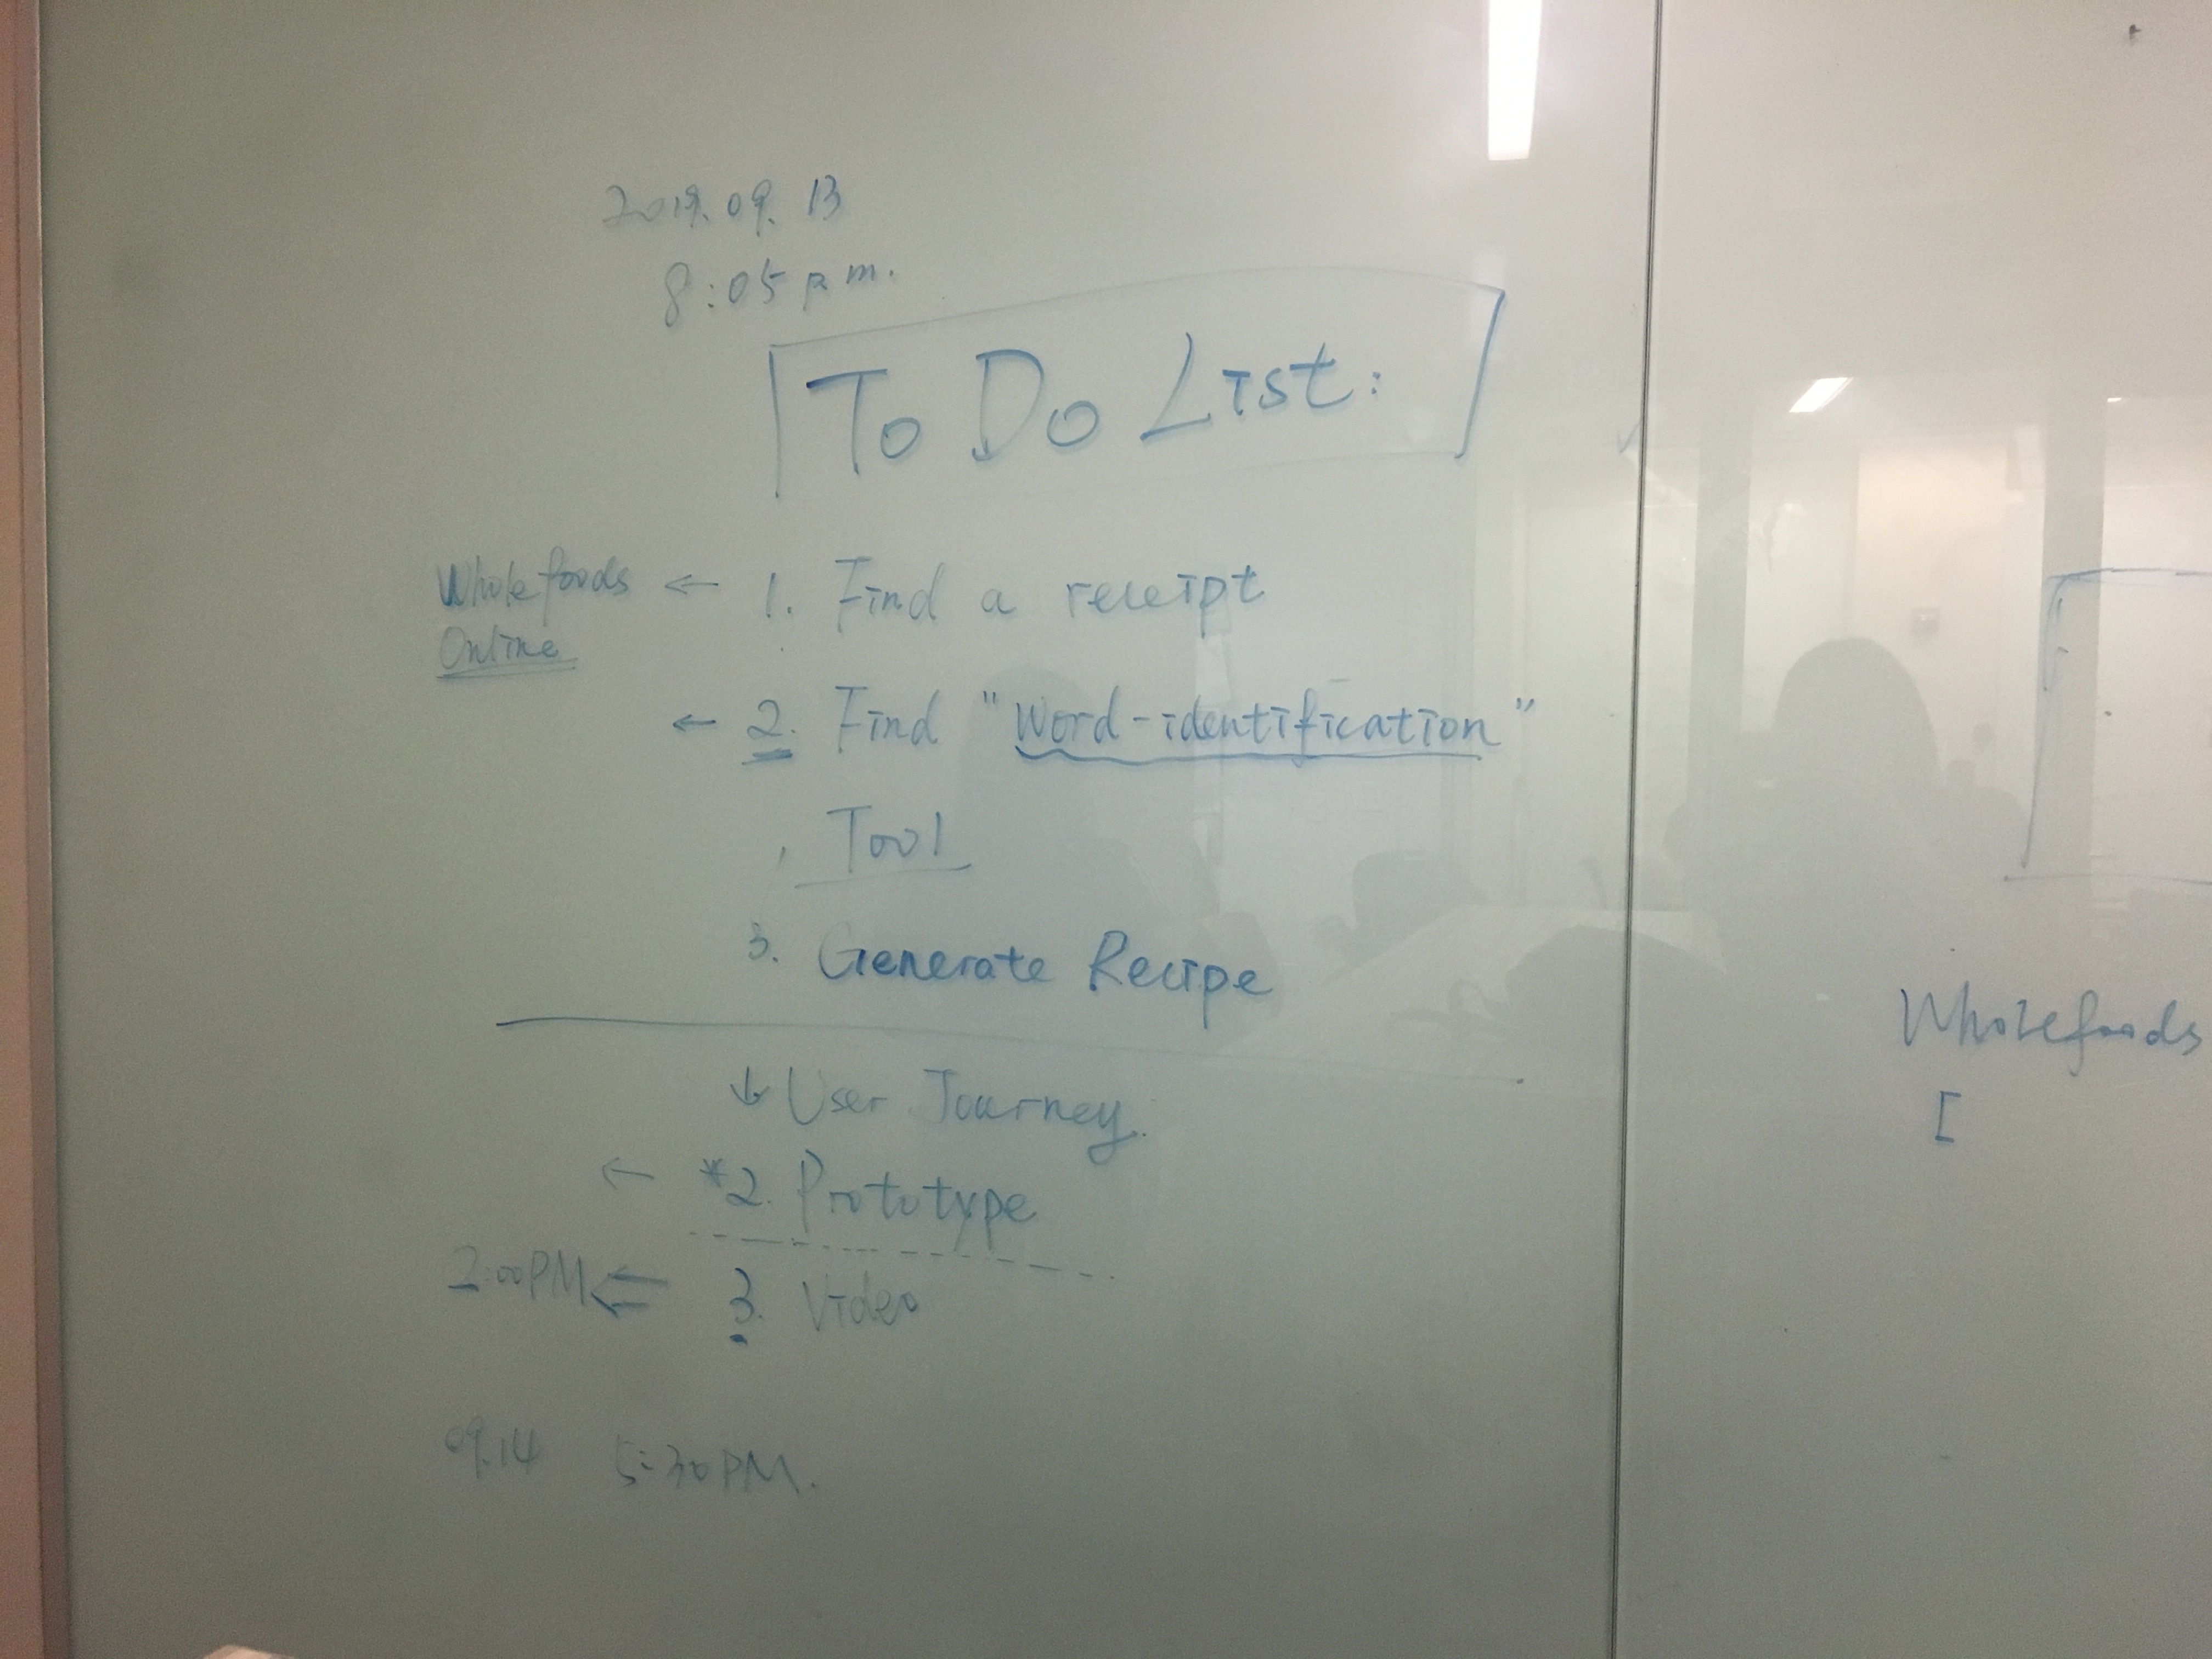 2019.09.13
8:05 p.m.
To Do List:
Wholefoods ← 1. Find a receipt
Online
← 2. Find "Word-identification"
Tool
3. Generate Recipe
↓ User Journey.
← *2. Prototype
2:00PM ⇐ 3. Video
09.14 5:30PM.
Wholefoods
[